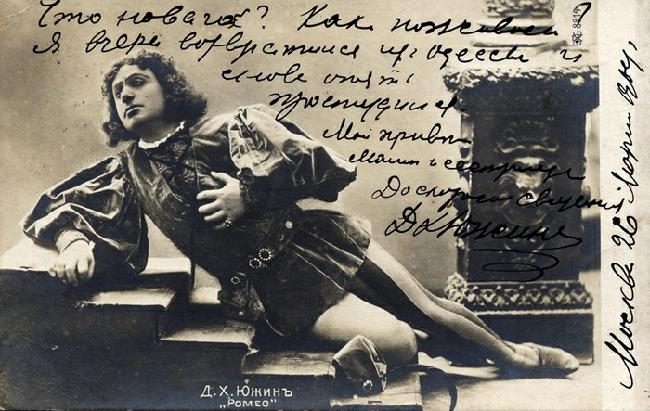 Что новаго? Как поживаете
Я вчера возвратился из Одессы и
снова опять
простудился.
Мой привет
Маме и сестрице
До скорого свидания
Д. Южин
Москва 26
Д. Х. Южинъ
„Ромео“